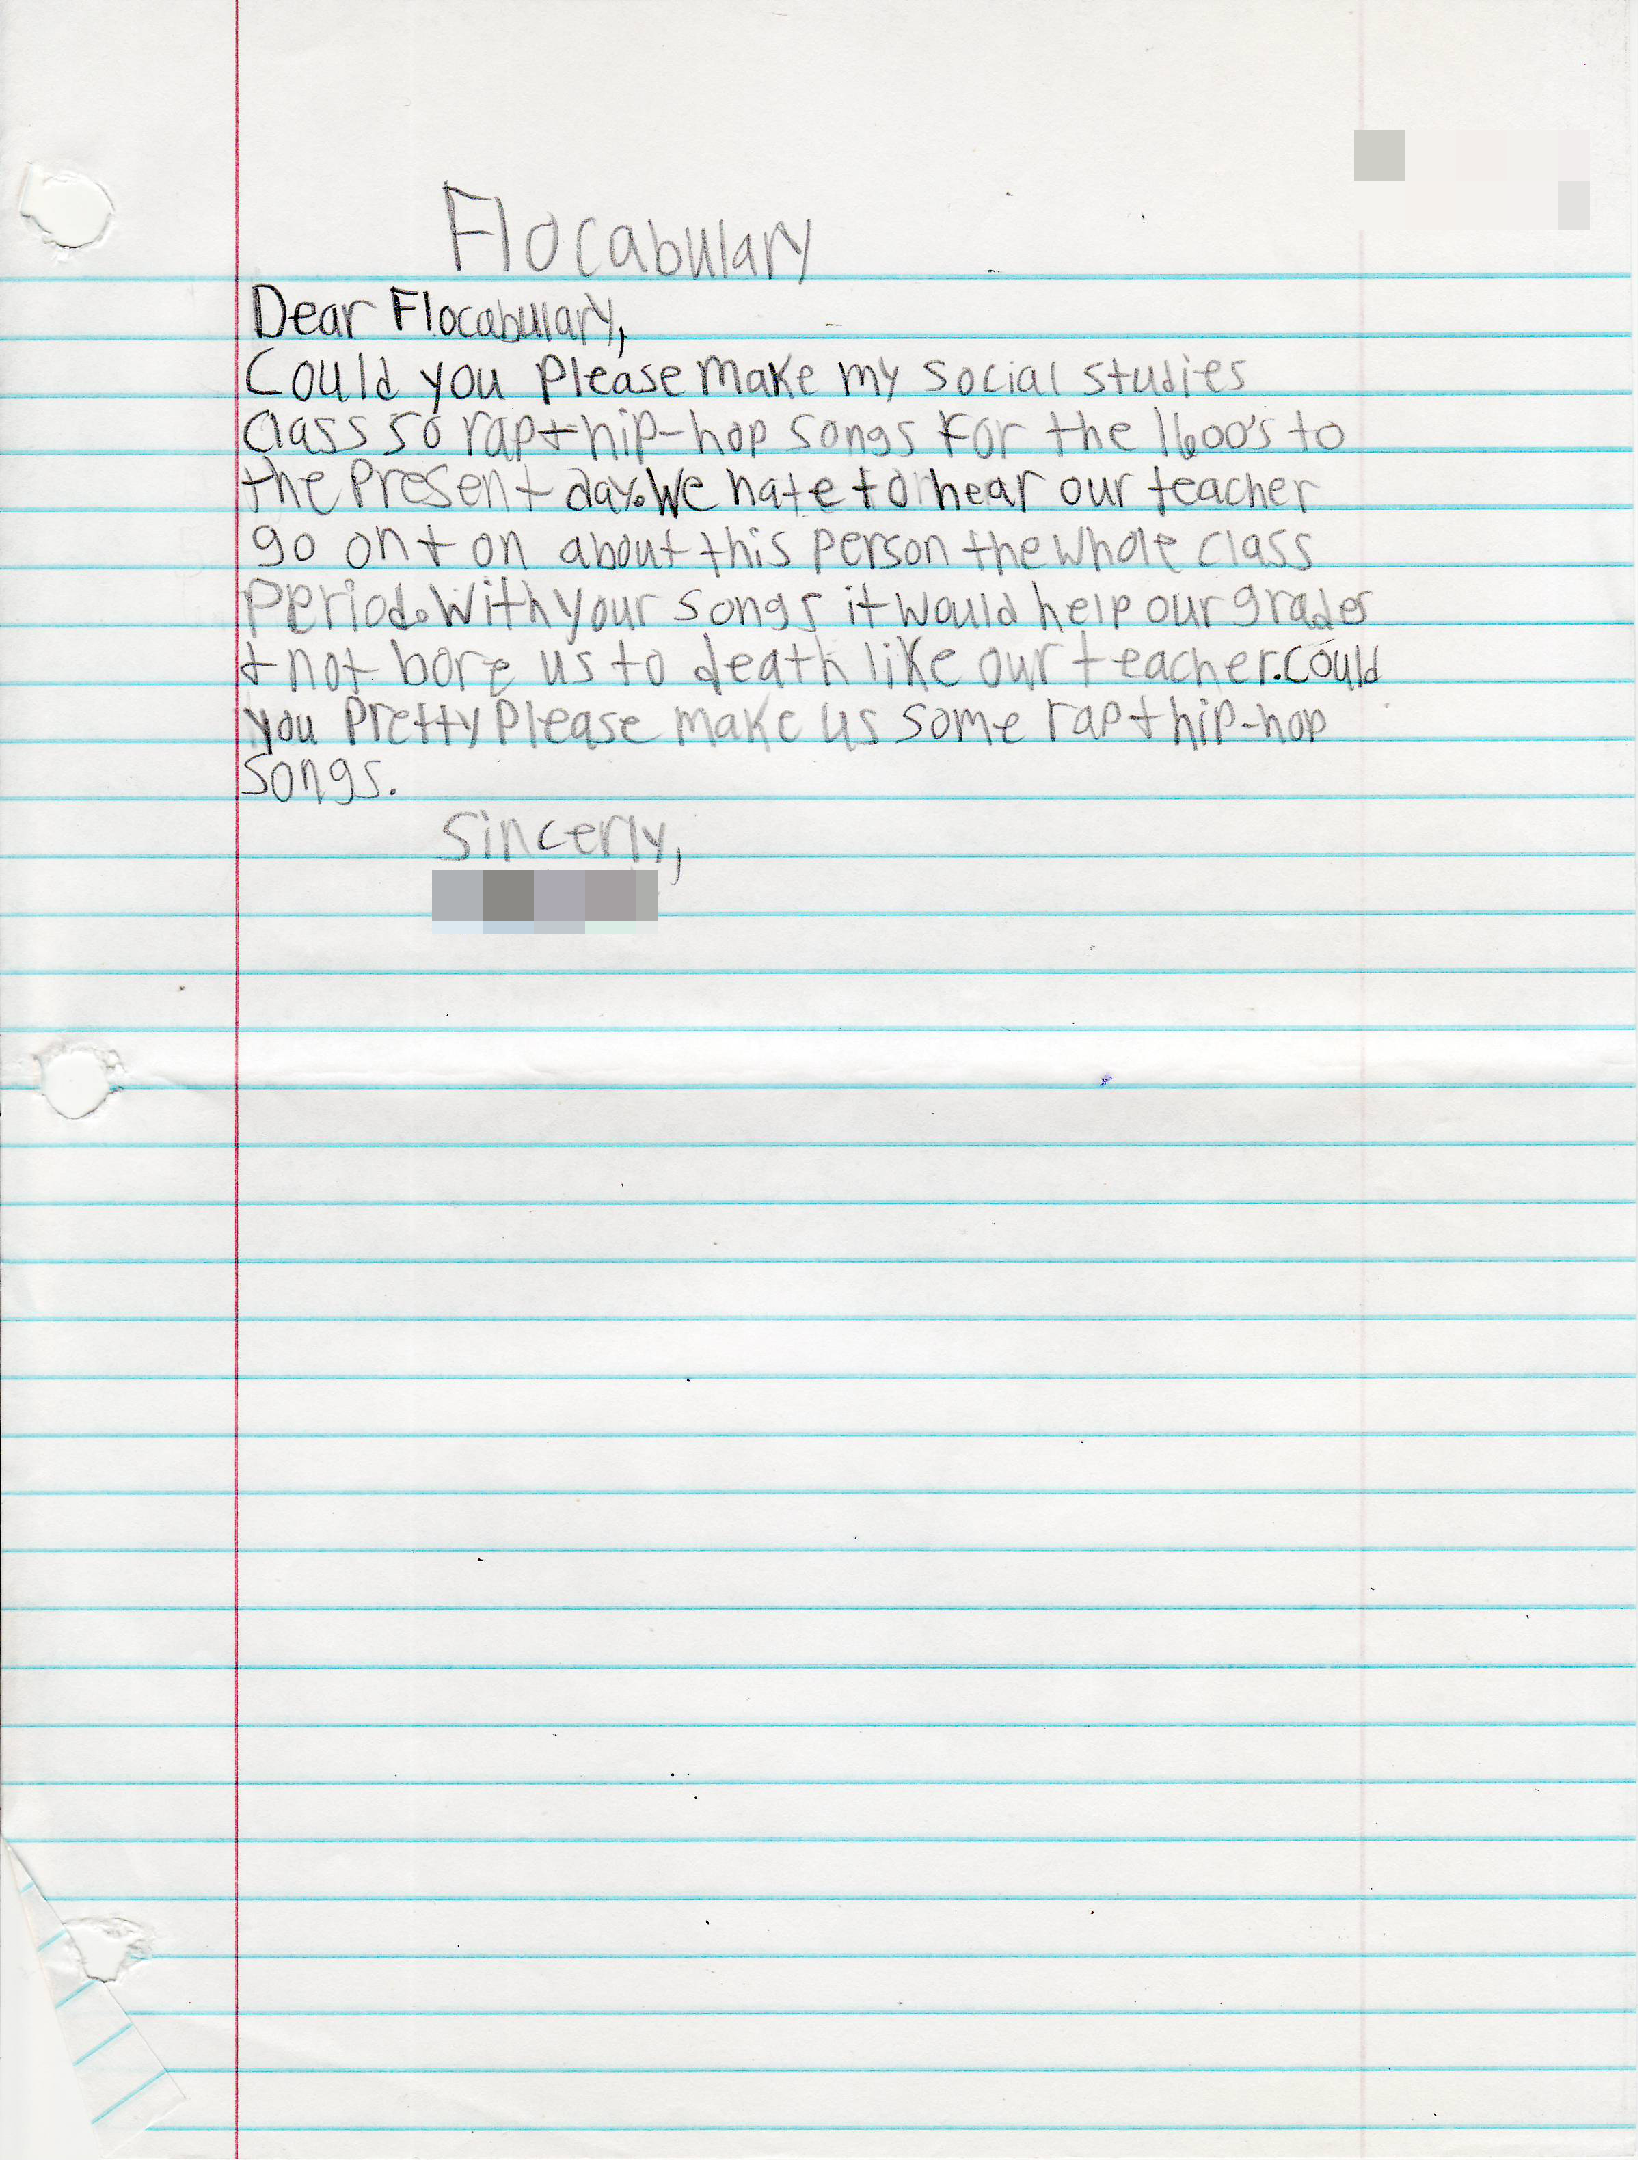 Flocabulary
Dear Flocabulary,
Could you please make my social studies
class so rap + hip-hop songs for the 1600's to
the present day. We hate to hear our teacher
go on + on about this person the whole class
period. With your songs it would help our grades
+ not bore us to death like our teacher. Could
you pretty please make us some rap + hip-hop
songs.
Sincerly,